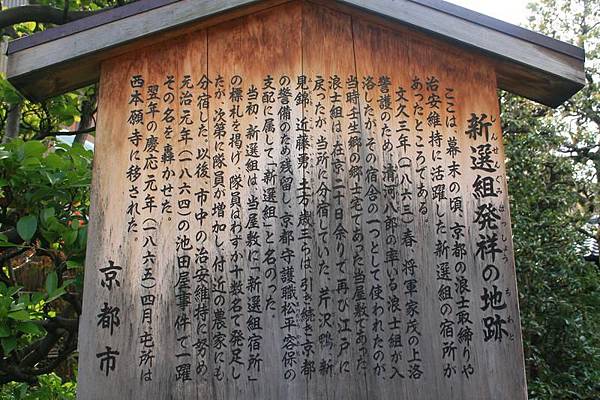 新選組発祥の地跡
しんせんぐみはっしょう ち あと
ここは、幕末の頃、京都の浪士取締りや
治安維持に活躍した新選組の宿所が
あったところである。
文久三年(一八六三)春、将軍家茂の上洛
警護のため、清河八郎の率いる浪士組が入
洛したが、その宿舎の一つとして使われたのが、
当時壬生郷の郷士宅であった当屋敷であった。
浪士組は、在京二十日余りで再び江戸に
戻ったが、当所に分宿していた、芹沢鴨、新
見錦、近藤勇、土方歳三らは、引き続き京都
の警備のため残留し、京都守護職松平容保の
支配に属して「新選組」と名のった。
当初、新選組は、当屋敷に「新選組宿所」
の標札を掲げ、隊員はわずか十数名で発足し
たが、次第に隊員が増加し、付近の農家にも
分宿した。以後、市中の治安維持に努め、
元治元年(一八六四)の池田屋事件で一躍
その名を轟かせた。
翌年の慶応元年(一八六五)四月、屯所は
西本願寺に移された。
京都市